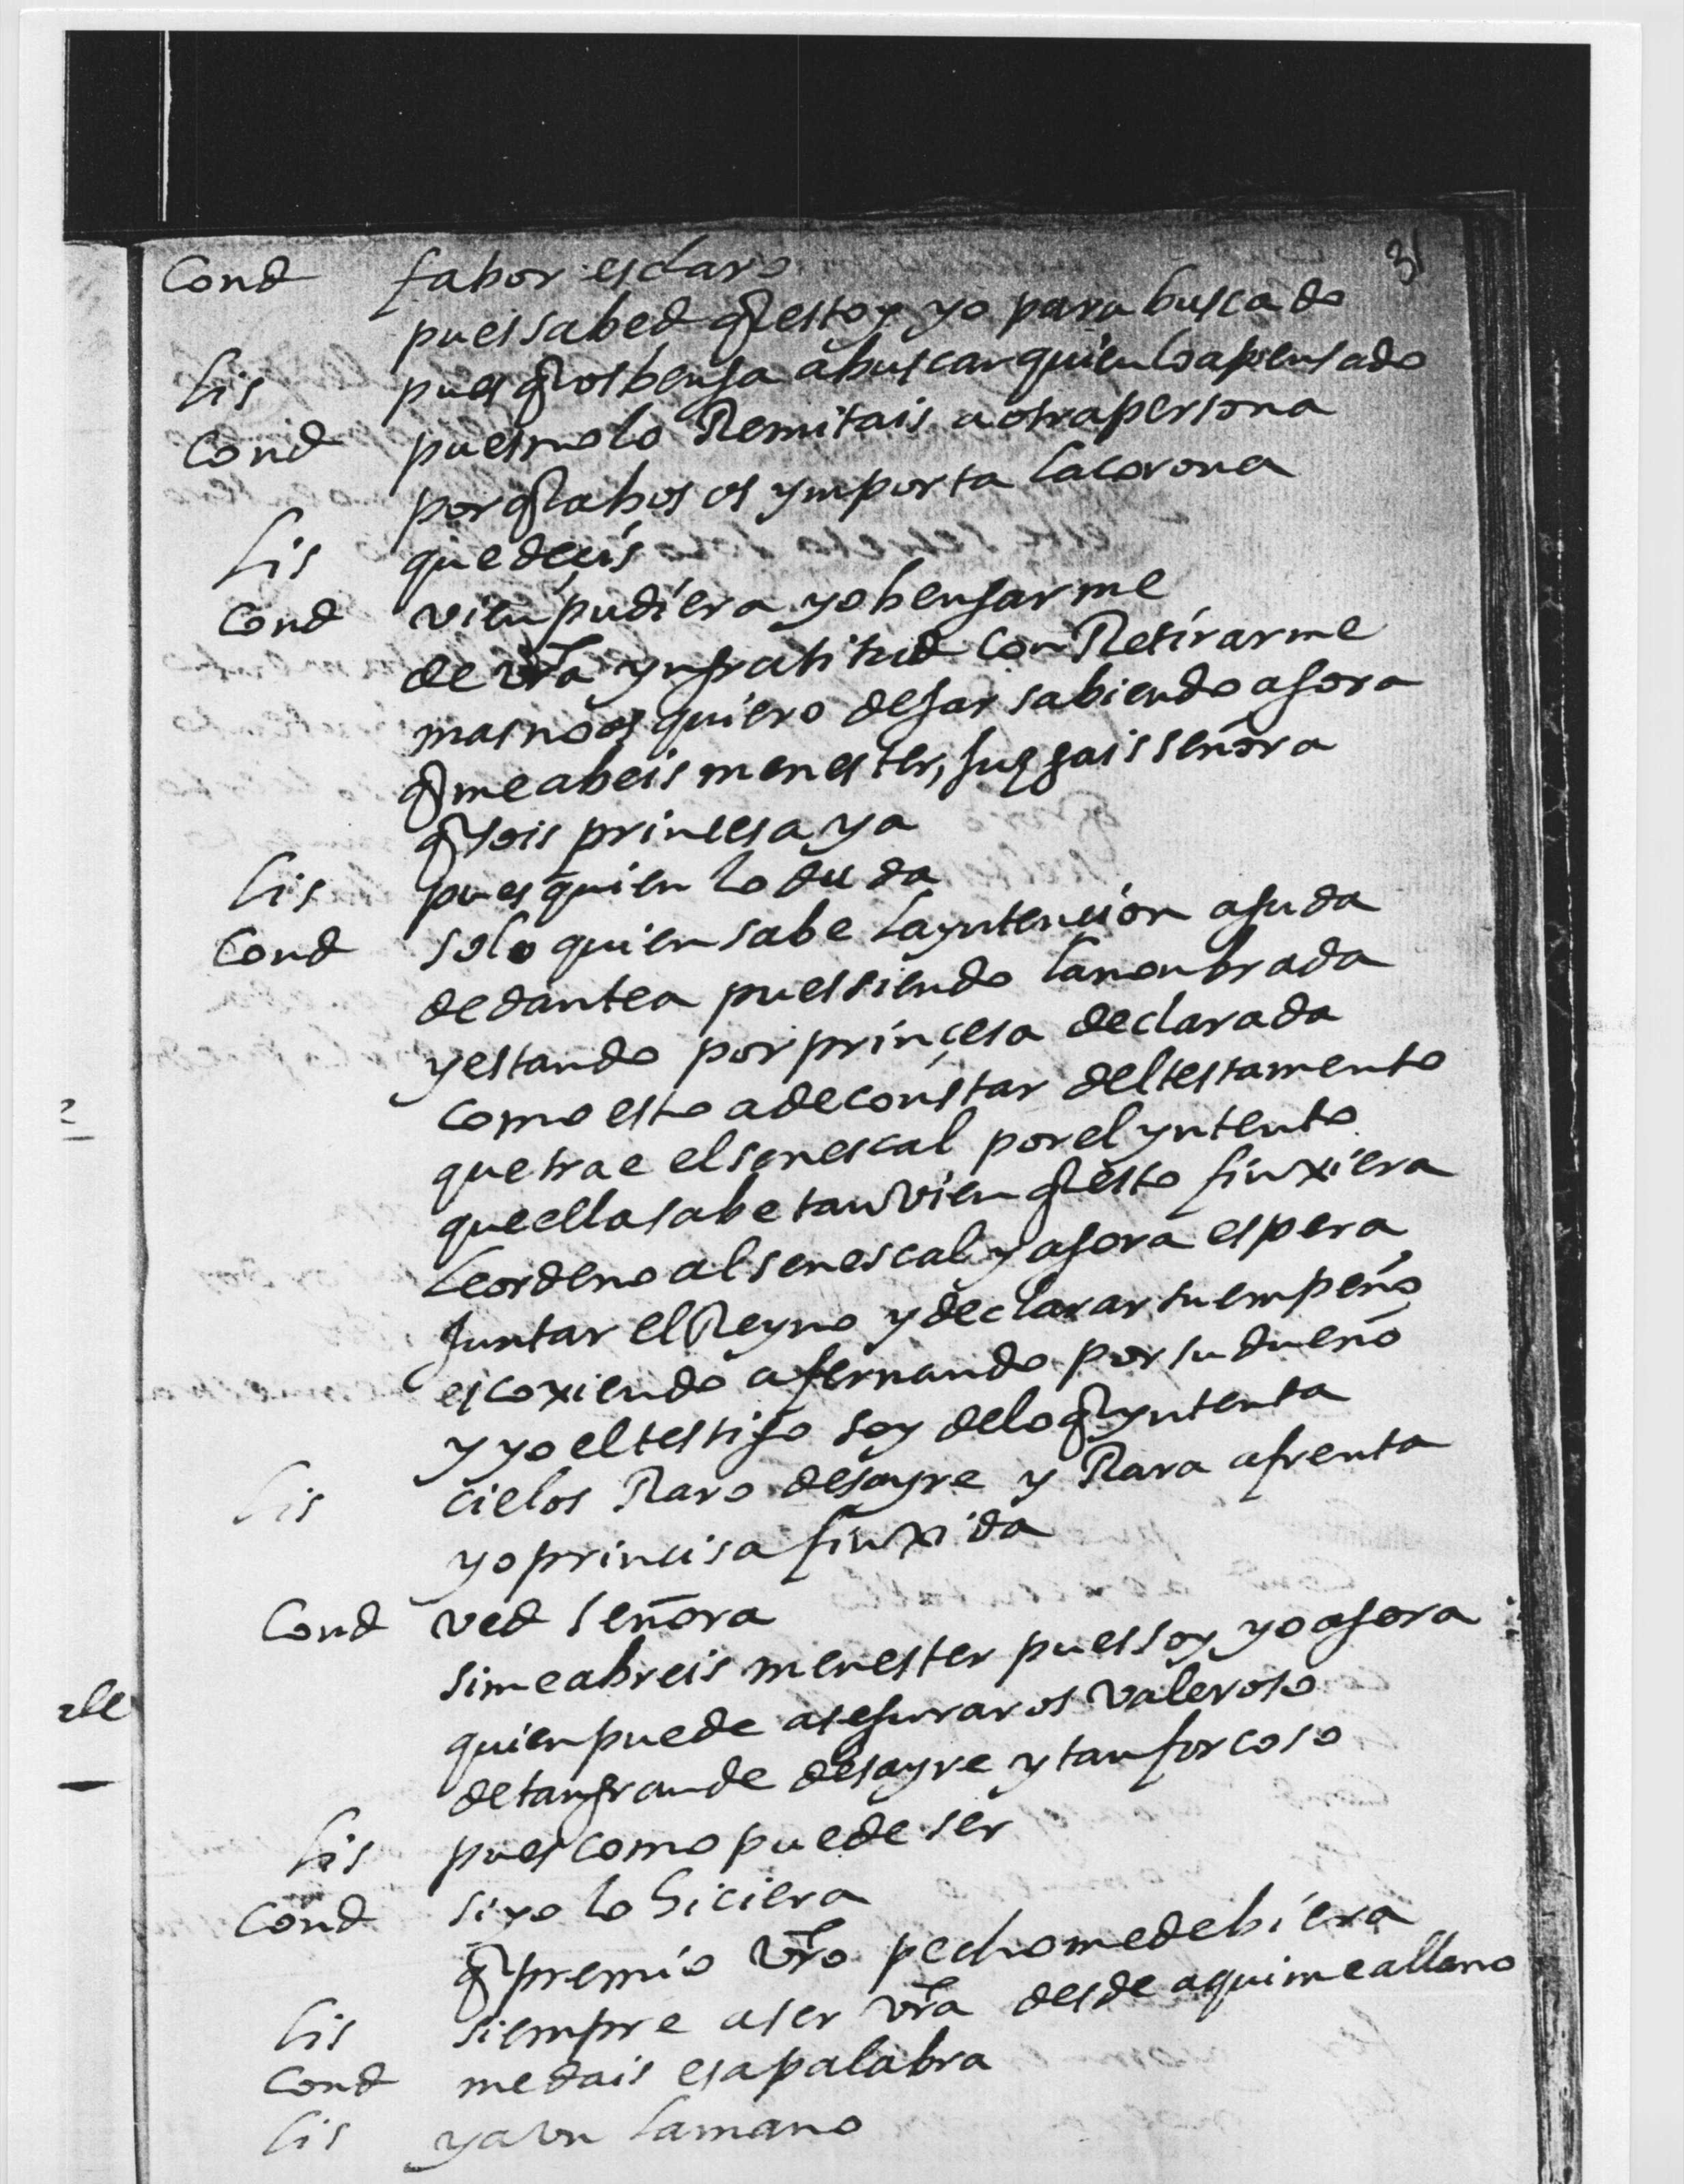 31
Cond fabor es claro
pues sabed q estoy yo para buscado
Lis pues q os benga a buscar quien lo a pensado
Cond pues no lo Remitais a otra persona
porq a bos os ymporta la corona
Lis que decis
Cond vien pudiera yo bengarme
de vra yngratitud con Retirarme
mas no os quiero dejar sabiendo agora
q me abeis menester, juzgais señora
q sois princesa ya
Lis pues quien lo duda
Cond solo quien sabe la yntencion aguda
de dantea pues siendo la nonbrada
y estando por prinçesa declarada
como esto a de constar del testamento
que trae el senescal por el yntento
que ella sabe tanvien q esto finxiera
le ordeno al senescal y agora espera
Juntar el Reyno y declarar su empeño
escoxiendo a fernando por su dueño
y yo el testigo soy de lo q yntenta
Lis cielos Raro desayre y Rara afrenta
yo princisa finxida
Cond ved señora
si me abreis menester pues soy yo agora
quien puede aseguraros valeroso
de tan grande desayre y tan forcoso
Lis pues como puede ser
Cond si yo lo hiciera
q premio vro pecho me debiera
Lis siempre a ser vra desde aqui me allano
Cond me dais esa palabra
Lis y a vn la mano